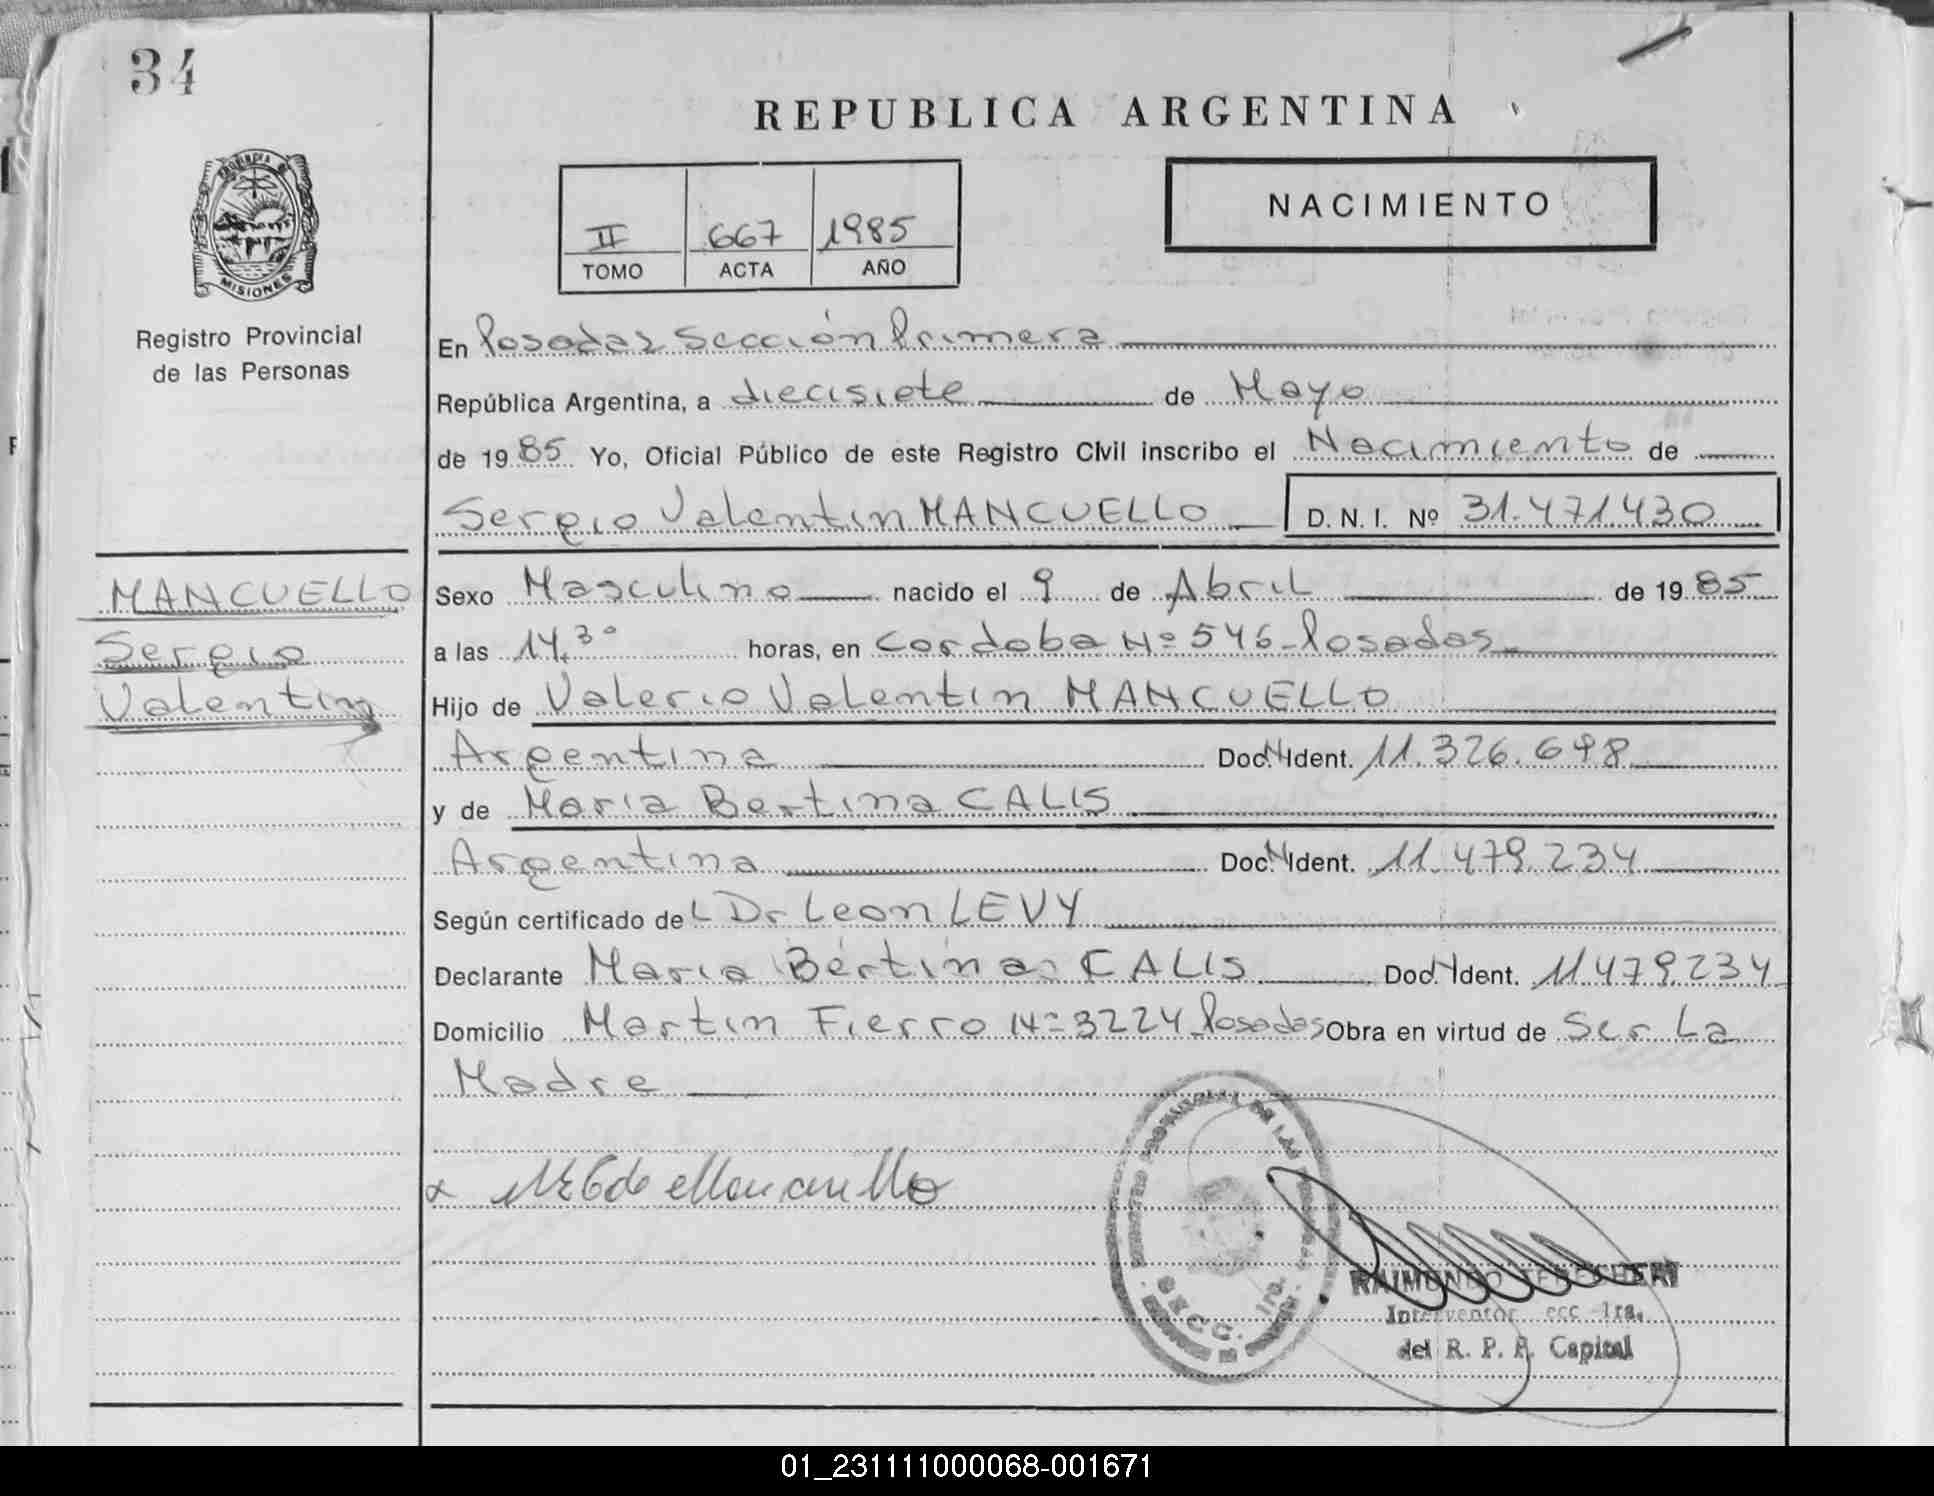 34
REPUBLICA ARGENTINA
PROVINCIA DE
MISIONES
Registro Provincial
de las Personas
II 667 1985
TOMO ACTA AÑO
NACIMIENTO
En Posadas Sección Primera
República Argentina, a diecisiete de Mayo
de 1985 Yo, Oficial Público de este Registro Civil inscribo el Nacimiento de
Sergio Valentin MANCUELLO D.N.I. Nº 31.471.430
MANCUELLO
Sergio
Valentin
Sexo Masculino nacido el 9 de Abril de 1985
a las 14,30 horas, en Cordoba Nº 546 - Posadas
Hijo de Valerio Valentin MANCUELLO
Argentina Doc. N Ident. 11.326.698
y de Maria Bertina CALIS
Argentina Doc. N Ident. 11.479.234
Según certificado del Dr Leon LEVY
Declarante Maria Bertina CALIS Doc. N Ident. 11.479.234
Domicilio Martin Fierro Nº 3224 Posadas Obra en virtud de Ser La
Madre
de Mancuello
REGISTRO PROVINCIAL DE LAS PERSONAS
SECC. 1ra.
RAIMUNDO
Interventor Secc 1ra.
del R. P. P. Capital
01_231111000068-001671